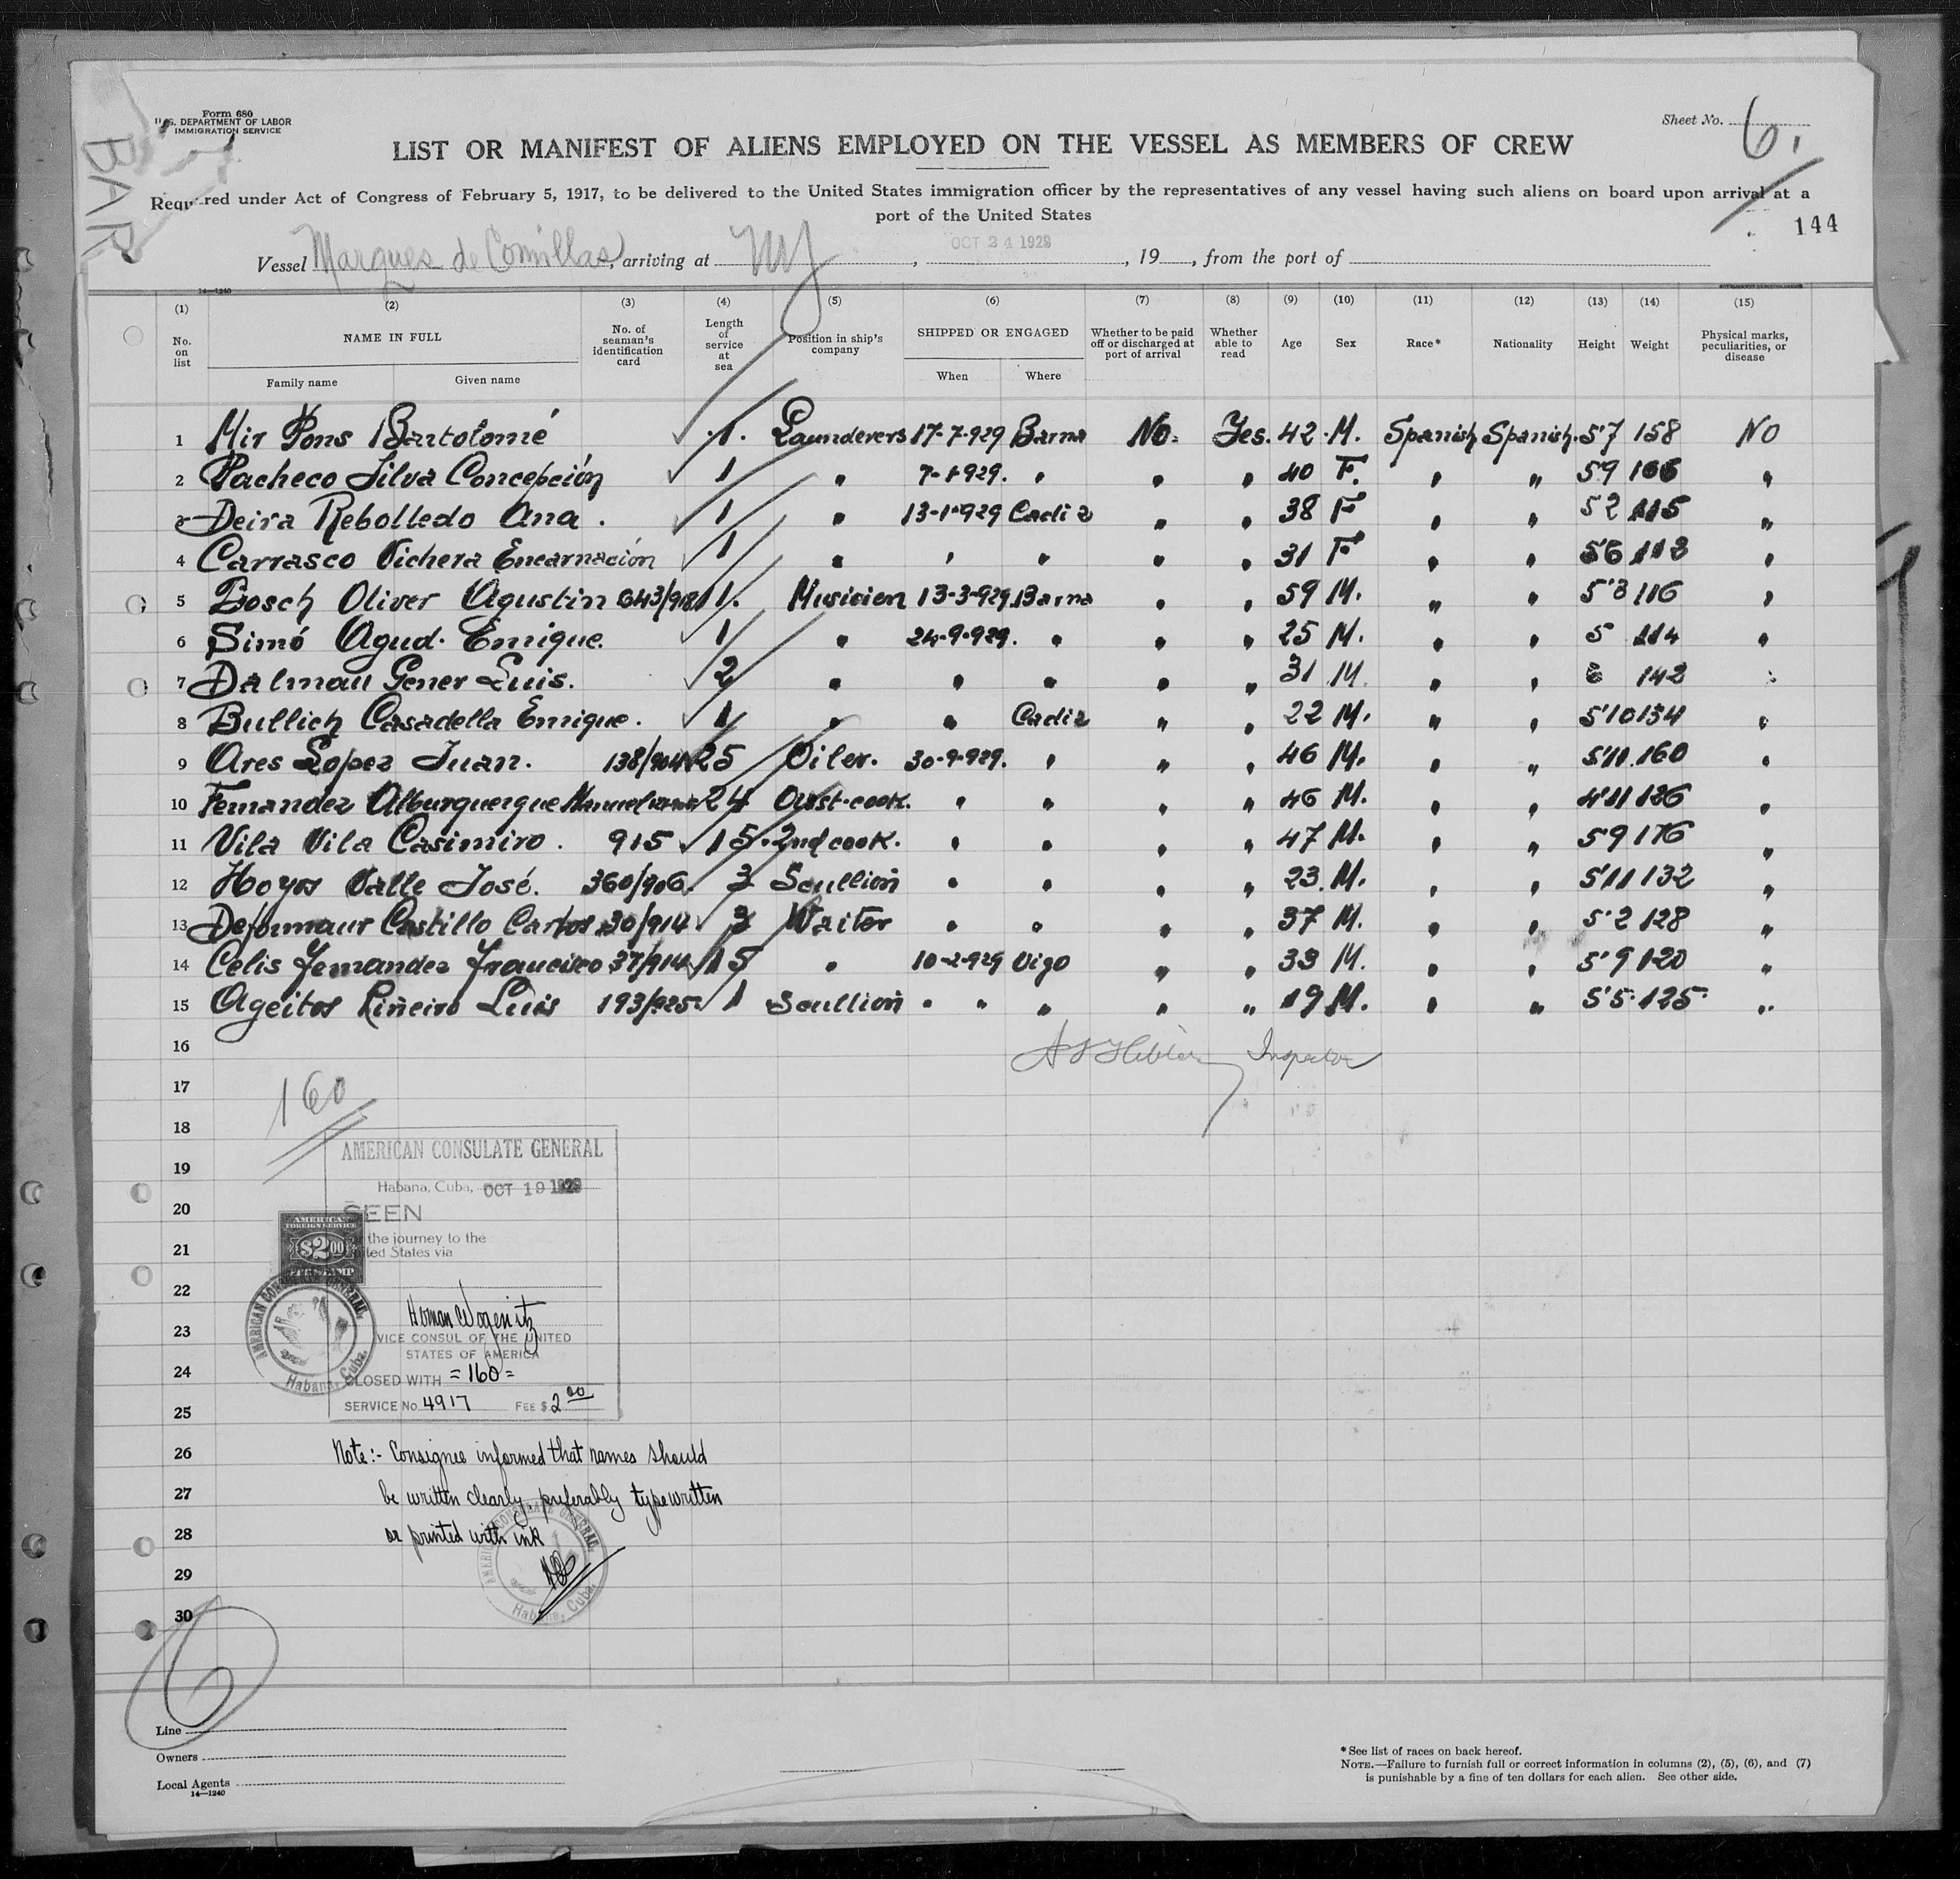 Form 680
U.S. DEPARTMENT OF LABOR
IMMIGRATION SERVICE
Sheet No. 6.
BAR
LIST OR MANIFEST OF ALIENS EMPLOYED ON THE VESSEL AS MEMBERS OF CREW
Required under Act of Congress of February 5, 1917, to be delivered to the United States immigration officer by the representatives of any vessel having such aliens on board upon arrival at a
port of the United States
144
Vessel Marques de Comillas, arriving at NY, OCT 24 1929, 19, from the port of
14—1240
(1) (2) (3) (4) (5) (6) (7) (8) (9) (10) (11) (12) (13) (14) (15)
No. on list NAME IN FULL No. of seaman's identification card Length of service at sea Position in ship's company SHIPPED OR ENGAGED Whether to be paid off or discharged at port of arrival Whether able to read Age Sex Race* Nationality Height Weight Physical marks, peculiarities, or disease
Family name Given name When Where
1 Mir Pons Bartolomé 1. Launderers 17-7-929 Barna No. Yes. 42 M. Spanish Spanish 5'7 158 No
2 Pacheco Silva Concepción 1 " 7-1-929. " " " 40 F. " " 59 166 "
3 Deira Rebolledo Ana. 1 " 13-1-929 Cadiz " " 38 F " " 52 115 "
4 Carrasco Vichera Encarnación 1 " " " " " 31 F " " 56 112 "
5 Bosch Oliver Agustin 643/918 1. Musicion 13-3-929. Barna " " 59 M. " " 5'3 116 "
6 Simó Agud. Enrique. 1 " 24-9-929. " " " 25 M. " " 5 114 "
7 Dalmau Gener Luis. 2 " " " " " 31 M. " " 142 "
8 Bullich Casadella Enrique. 1 " " Cadiz " " 22 M. " " 5'10 134 "
9 Ares Lopez Juan. 138/904 25 Oiler. 30-9-929. " " " 46 M. " " 5'11 160 "
10 Fernandez Alburquerque Manuel 24 Asst-cook. " " " " 46 M. " " 4'11 126 "
11 Vila Vila Casimiro. 915 15 2nd cook. " " " " 47 M. " " 59 176 "
12 Hoyos Valle José. 360/906 3 Scullion " " " " 23 M. " " 5'11 132 "
13 Castillo Carlos 30/914 3 Waiter " " " " 37 M. " " 5'2 128 "
14 Celis Fernandez Francisco 37/914 15 " 10-2-929 Vigo " " 33 M. " " 5'9 120 "
15 Ageitos Piñeiro Luis 193/925 1 Scullion " " " " " 19 M. " " 5'5 125 "
16 Inspector
17
160
18
AMERICAN CONSULATE GENERAL
19
Habana, Cuba, OCT 19 1929
20
SEEN
AMERICAN
FOREIGN SERVICE
$2.00
FEE STAMP
21
the journey to the
United States via
22
AMERICAN CONSULATE GENERAL.
Habana, Cuba.
23
VICE CONSUL OF THE UNITED
STATES OF AMERICA
24
CLOSED WITH =160=
SERVICE No. 4917 FEE $ 2.00
25
26 Note:- Consignee informed that names should
27 be written clearly, preferably typewritten
28 or printed with ink
AMERICAN CONSULATE GENERAL.
Habana, Cuba.
29
30
6
Line
Owners
Local Agents
14—1240
* See list of races on back hereof.
NOTE.—Failure to furnish full or correct information in columns (2), (5), (6), and (7)
is punishable by a fine of ten dollars for each alien. See other side.